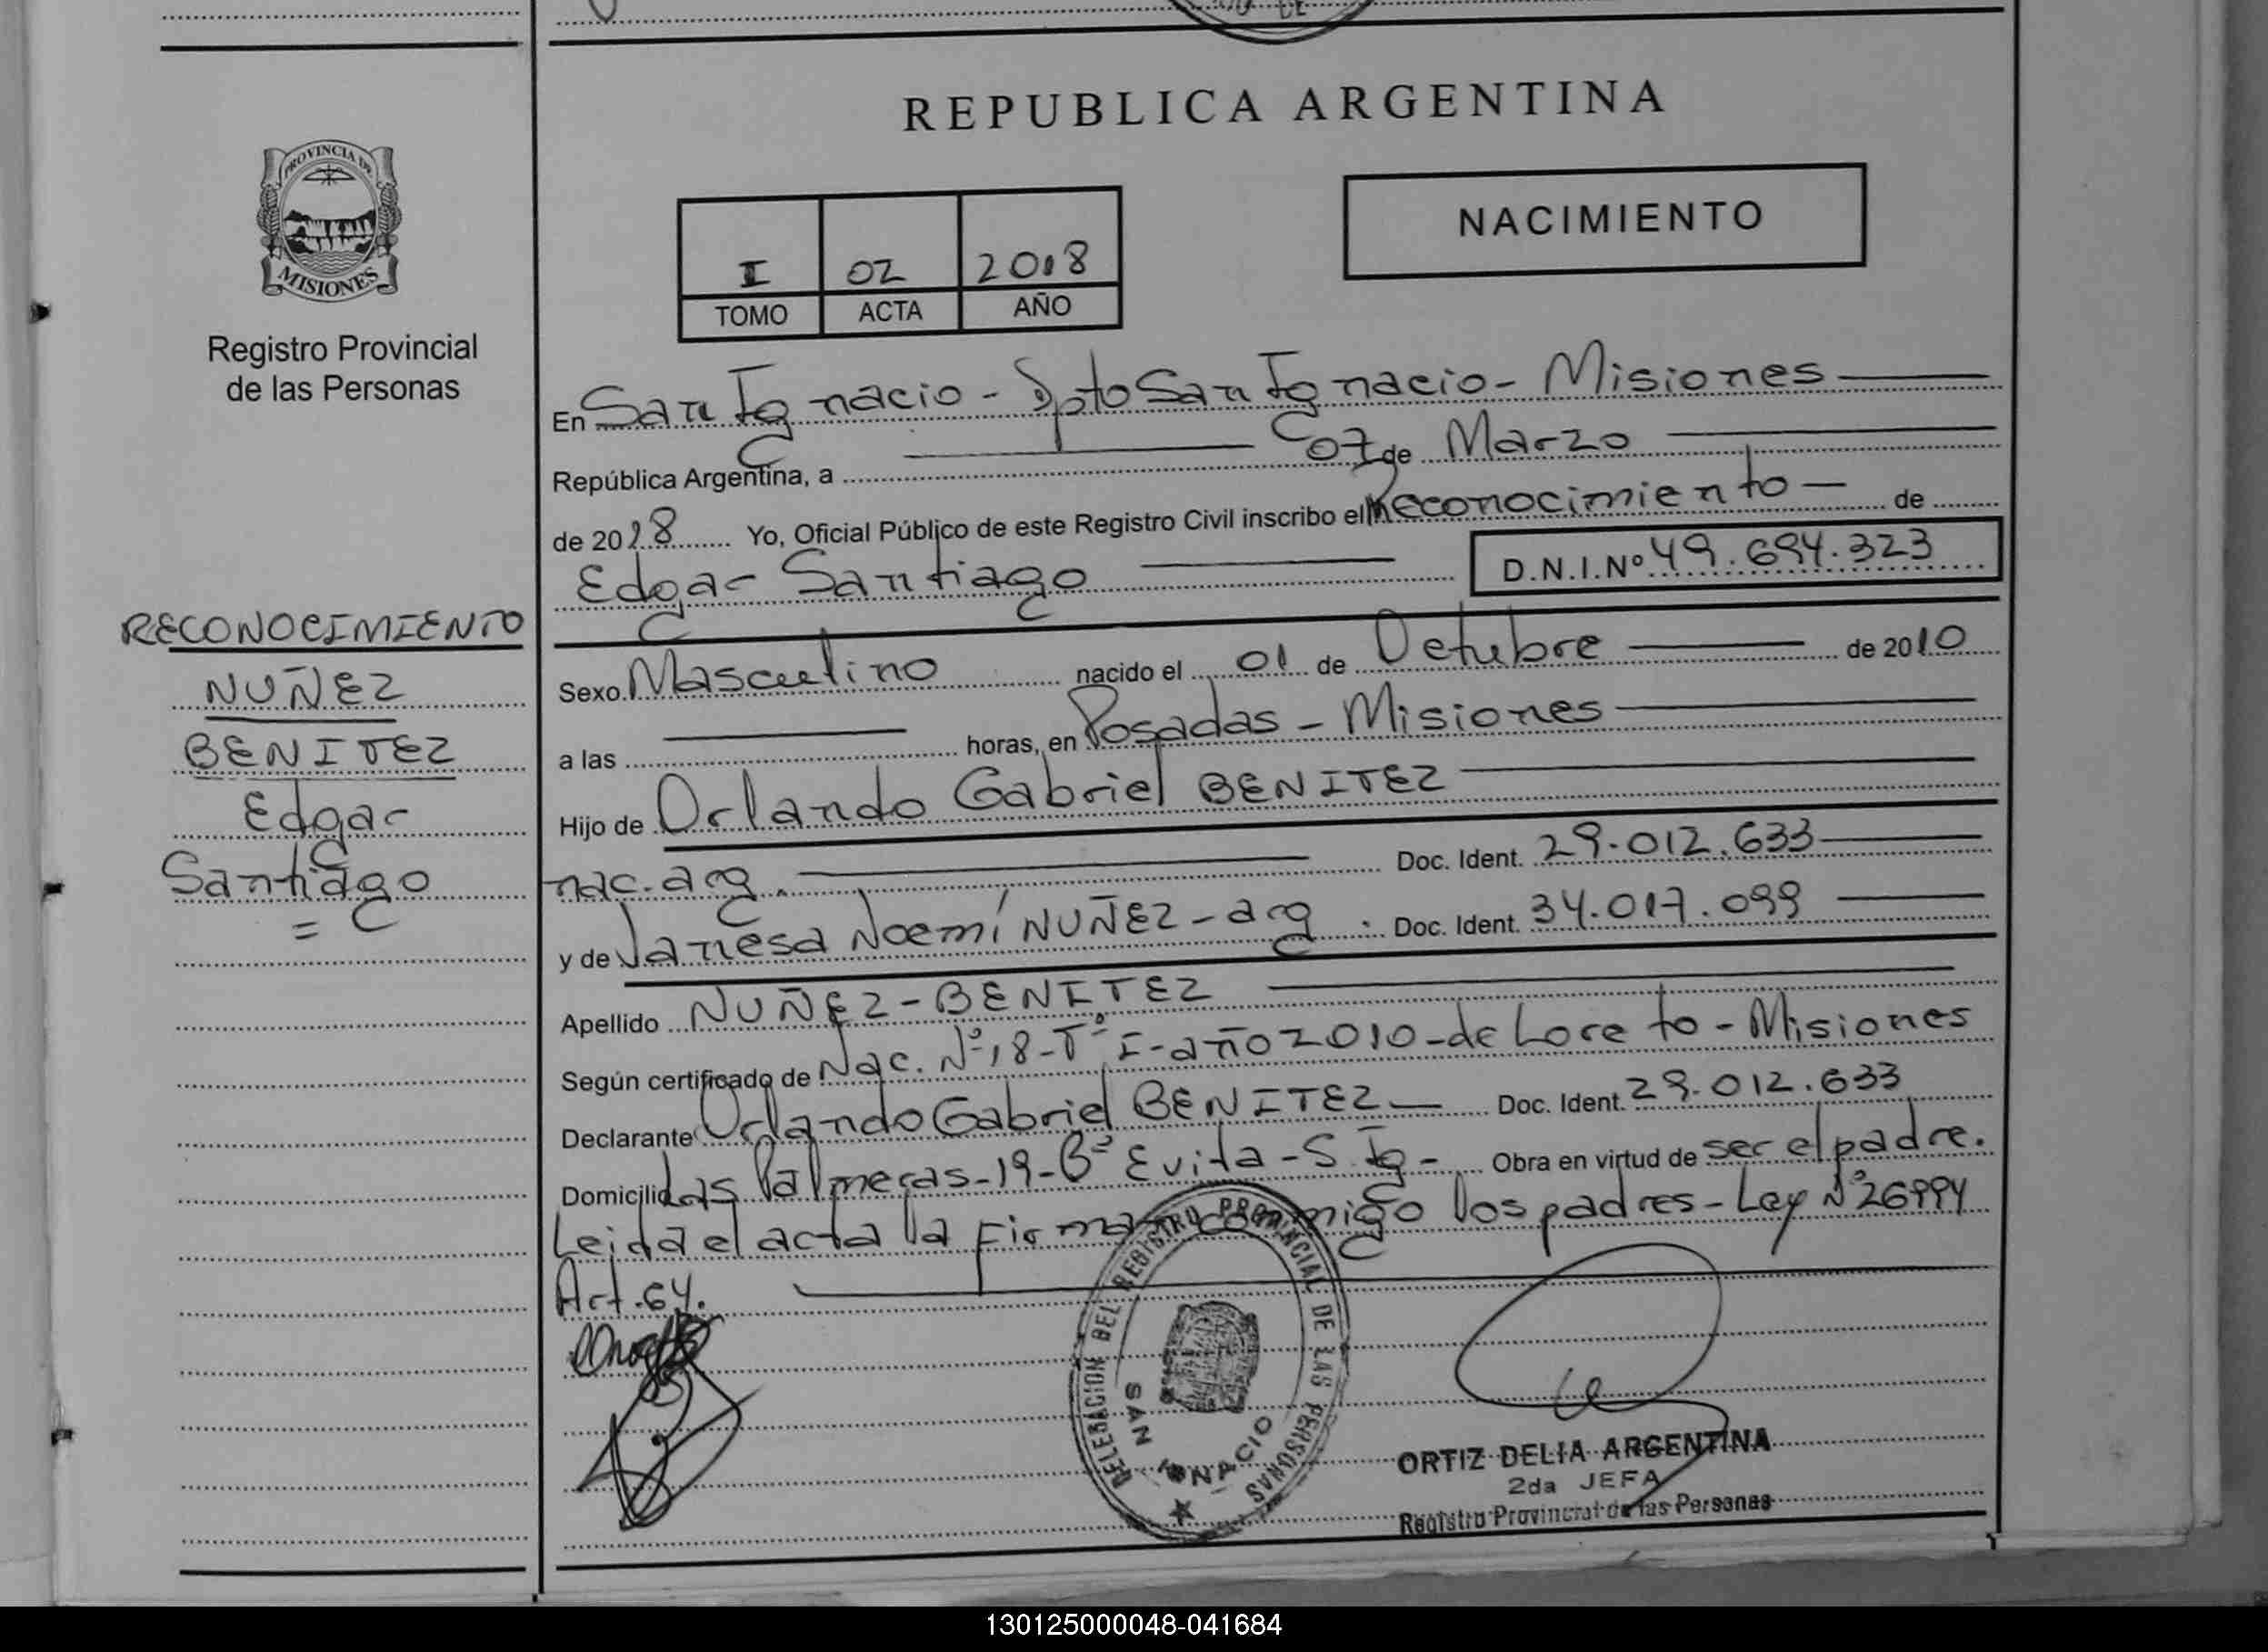 REPUBLICA ARGENTINA
PROVINCIA DE
MISIONES
Registro Provincial
de las Personas
NACIMIENTO
I 02 2018
TOMO ACTA AÑO
En San Ignacio - Dpto San Ignacio - Misiones
República Argentina, a 07 de Marzo
de 2018 Yo, Oficial Público de este Registro Civil inscribo el Reconocimiento - de
Edgar Santiago D.N.I.Nº 49.694.323
RECONOCIMIENTO
NUÑEZ
BENITEZ
Edgar
Santiago
=
Sexo Masculino nacido el 01 de Octubre de 2010
a las horas, en Posadas - Misiones
Hijo de Orlando Gabriel BENITEZ
nac. arg. Doc. Ident. 29.012.633
y de Vanesa Noemí NUÑEZ - arg. Doc. Ident. 34.017.099
Apellido NUÑEZ - BENITEZ
Según certificado de Nac. Nº 18 - Tº I - año 2010 - de Loreto - Misiones
Declarante Orlando Gabriel BENITEZ - Doc. Ident. 29.012.633
Domicilio Las Palmeras - 19 - Bº Evita - S. Ig - Obra en virtud de ser el padre.
Leida el acta la firman conmigo los padres - Ley Nº 26994
Art. 64.
DELEGACION DEL REGISTRO PROVINCIAL DE LAS PERSONAS
SAN IGNACIO
ORTIZ DELIA ARGENTINA
2da JEFA
Registro Provincial de las Personas
130125000048-041684